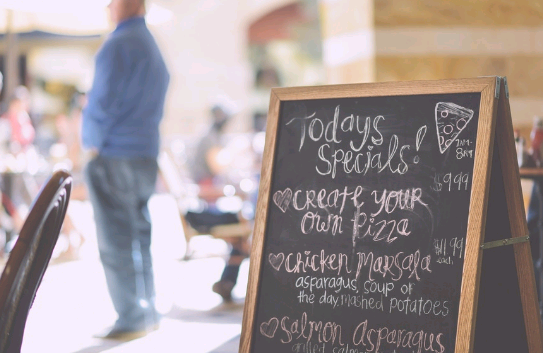 Todays
Specials!
7AM-
8PM
$9.99
Create your
own Pizza
$11.99
each.
Chicken Marsala
asparagus, soup of
the day, mashed potatoes
Salmon Asparagus
grilled salmon